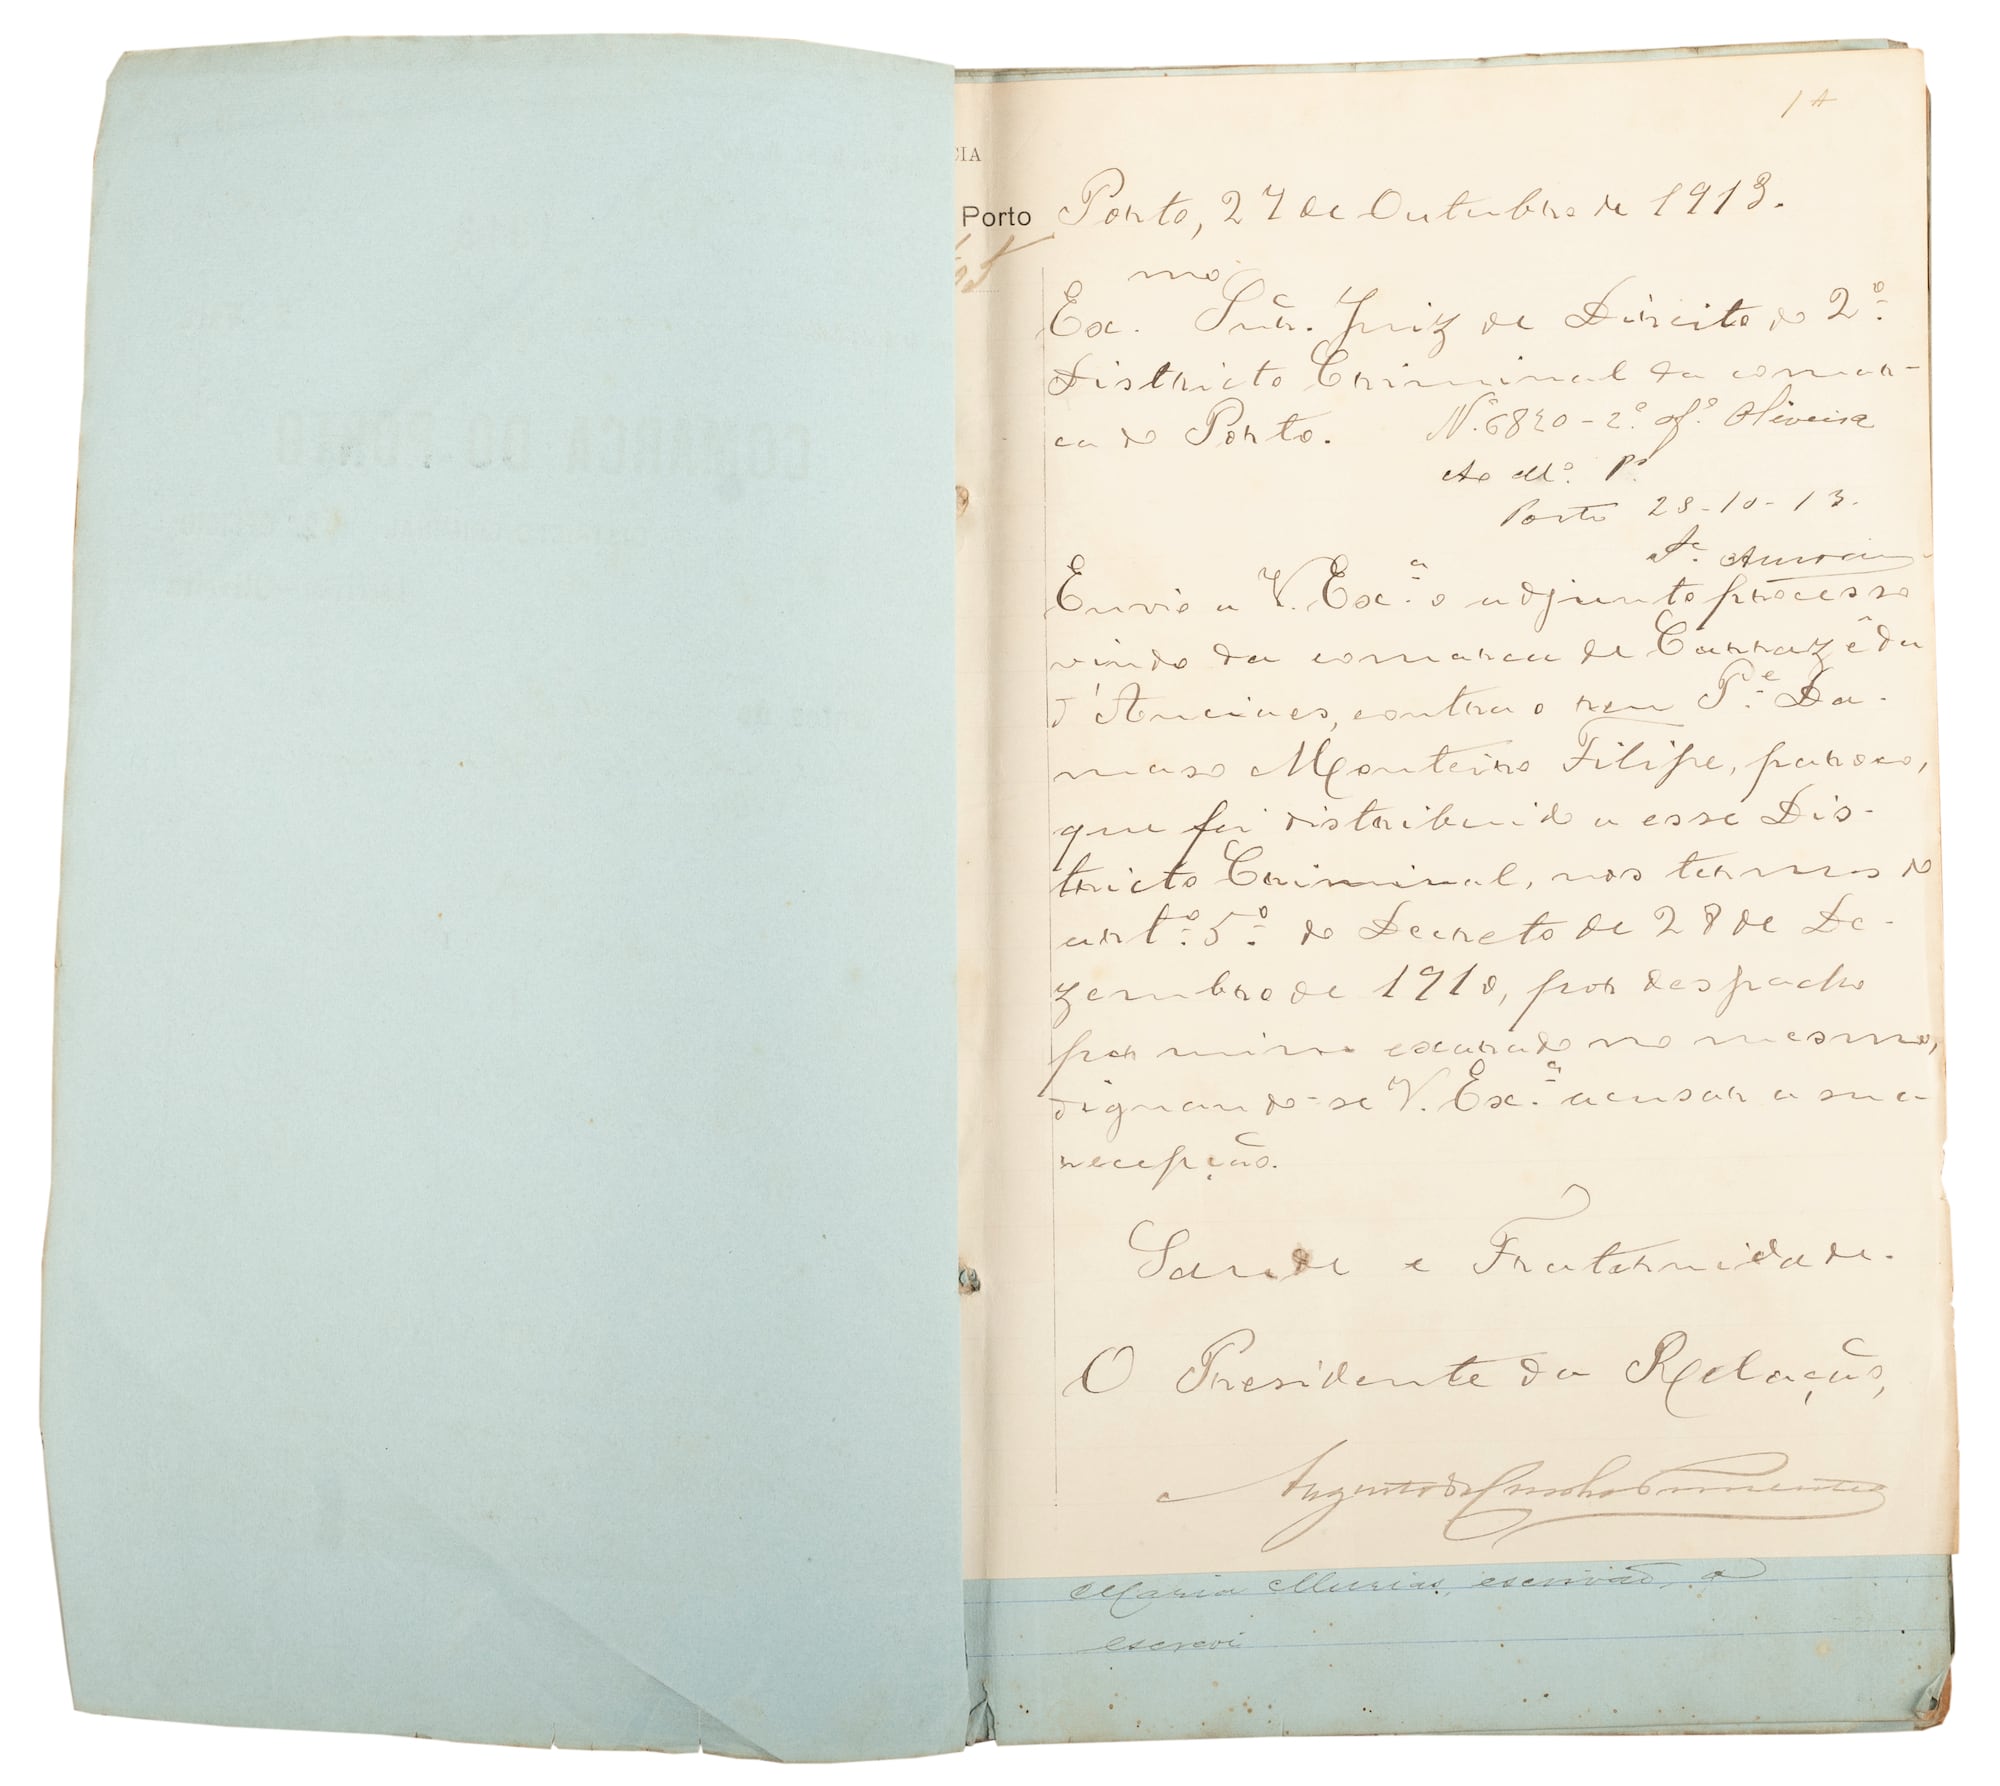 CIA
Porto
Porto, 27 de Outubro de 1913.
Ex.mo Snr. Juiz de Direito do 2.º
Districto Criminal da comar-
ca do Porto.
N.º 6820 - 2.º of.º Oliveira
Ao M.º P.º
Porto 28-10-13.
Envio a V. Ex.ª o adjunto processo
vindo da comarca de Carrazêda
d'Anciaes, contra o reu P.e Da-
maso Monteiro Filipe, paroco,
que foi distribuido a esse Dis-
tricto Criminal, nos termos do
art.º 5.º do Decreto de 28 de De-
zembro de 1910, por despacho
por mim exarado no mesmo,
dignando-se V. Ex.ª acusar a sua
recepção.
Saude e Fraternidade.
O Presidente da Relação,
Augusto da Cunha Pimentel
Maria Murias, escrivão, o
escrevi
COMARCA DO PORTO
DISTRICTO CRIMINAL 2º OFFICIO